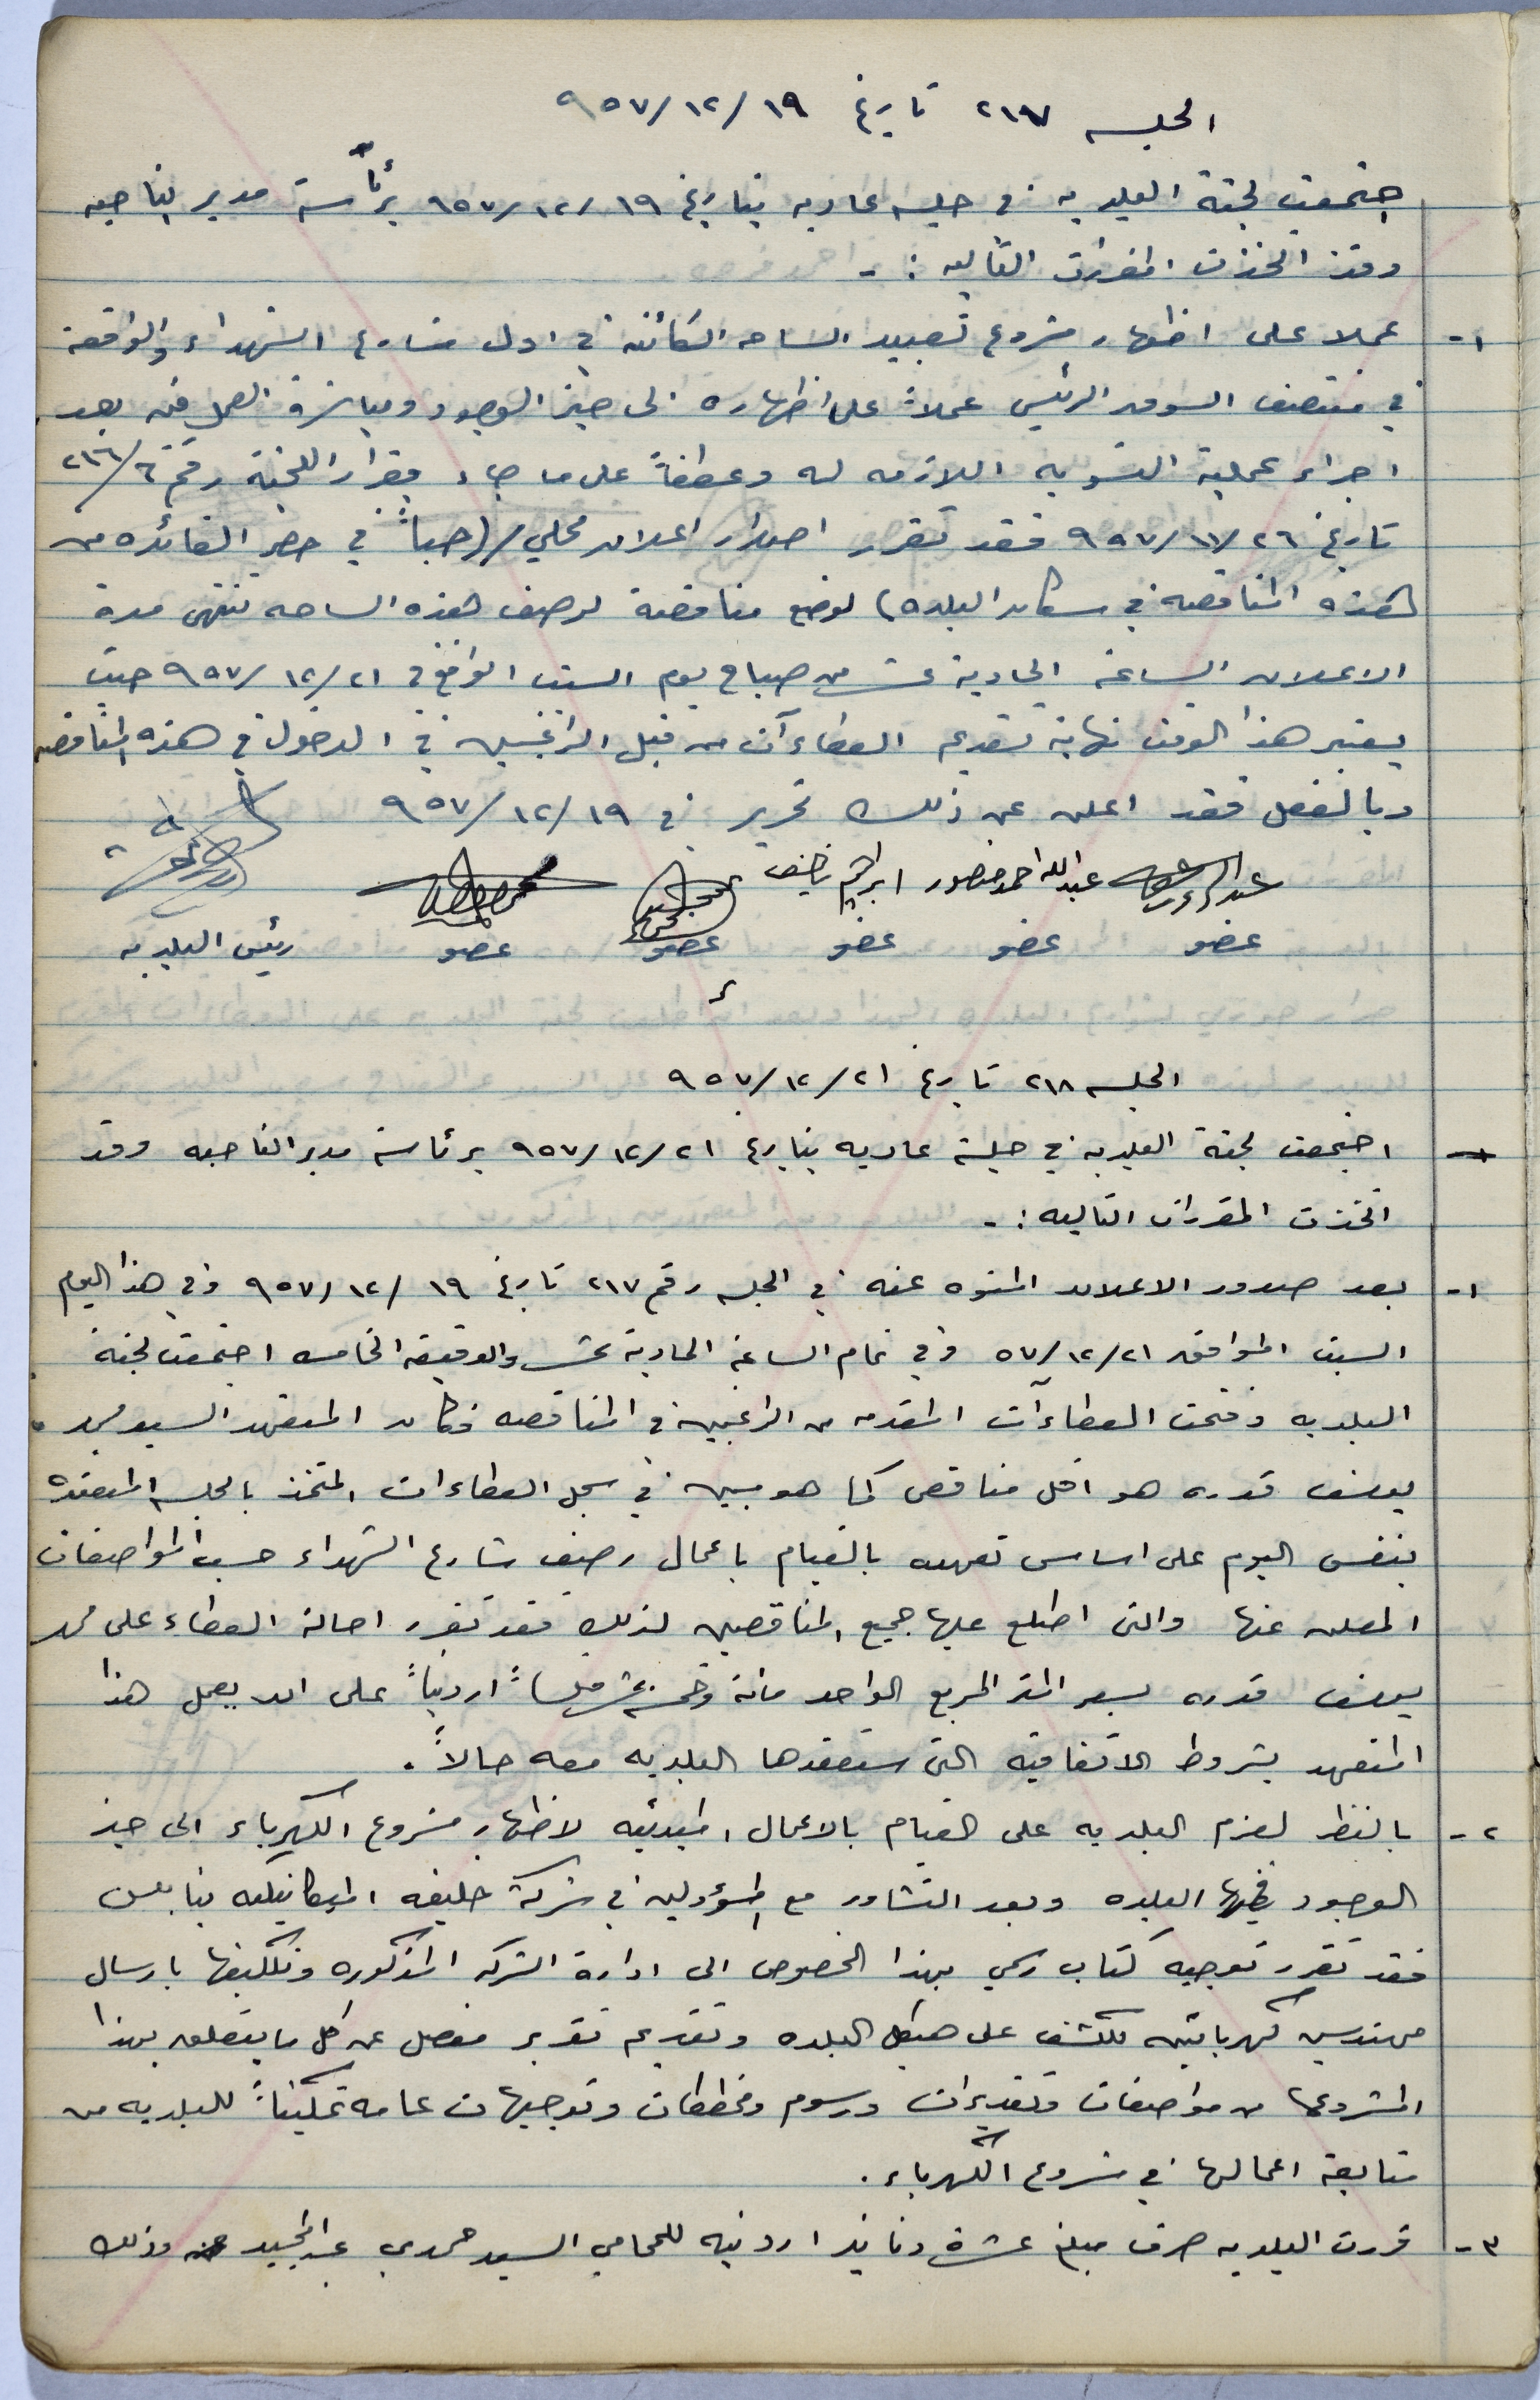 الجلسه ٢١٧ تاريخ ١٩/١٢/٩٥٧
اجتمعت لجنة البلديه في جلسه عاديه بتاريخ ١٩/١٢/٩٥٧ برئاسة مدير الناحيه
وقد اتخذت المقررات التاليه :-
١- عملا على اظهار مشروع تعبيد الساحه الكائنه في اول شارع الشهداء والواقعة
في منتصف السوق الرئيسي عملاً على اظهاره الى حيز الوجود ومباشرة العمل فيه بعد
اجراء عملية التسويه اللازمه له وعطفاً على ما جاء بقرار اللجنة رقم ٢١٦/٦
تاريخ ٢٦/١١/٩٥٧ فقد تقرر اصدار اعلان محلي/(حباً في حصر الفائده من
هذه المناقصه في سكان البلده) لوضع مناقصة لرصف هذه الساحه تنتهي مدة
الاعلان الساعة الحادية عشر من صباح يوم السبت الواقع في ٢١/١٢/٩٥٧ حيث
يعتبر هذا الوقت نهاية تقديم العطاءآت من قبل الراغبين في الدخول في هذه المناقصه
وبالفعل فقد اعلن عن ذلك تحرير في ١٩/١٢/٩٥٧
عبدالله احمد منصور ابراهيم
عضو عضو عضو عضو عضو رئيس البلديه
الجلسه ٢١٨ تاريخ ٢١/١٢/٩٥٧
اجتمعت لجنة البلديه في جلسة عاديه بتاريخ ٢١/١٢/٩٥٧ برئاسة مدير الناحيه وقد
اتخذت المقررات التاليه :-
١- بعد صدور الاعلان المنوه عنه في الجلسه رقم ٢١٧ تاريخ ١٩/١٢/٩٥٧ وفي هذا اليوم
السبت الموافق ٢١/١٢/٥٧ وفي تمام الساعة الحادية عشر والدقيقه الخامسه اجتمعت لجنة
البلديه وفتحت العطاءآت المقدمه من الراغبين في المناقصه فكان المتعهد السيد محمد
يوسف قدره هو اقل مناقص كما هو مبين في سجل العطاءات المتخذ بالجلسه المنعقده
بنفس اليوم على اساس تعهده بالقيام باعمال رصف شارع الشهداء حسب المواصفات
المعلن عنها والتي اطلع عليها جميع المناقصين لذلك فقد تقرر احالة العطاء على محمد
يوسف قدره بسعر المتر المربع الواحد مائة وخمسة عشر فلساً اردنياً على ان يعمل هذا
المتعهد بشروط الاتفاقيه التي ستعقدها البلديه معه حالاً.
٢- بالنظر لعزم البلديه على القيام بالاعمال المبدئيه لاظهار مشروع الكهرباء الى حيز
الوجود في هذه البلده وبعد التشاور مع المسؤولين في شركة خليفه الميكانيكيه بنابلس
فقد تقرر توجيه كتاب رسمي بهذا الخصوص الى ادارة الشركه المذكوره وتكليفها بارسال
مهندسين كهربائيين للكشف على هيكل البلده وتقديم تقرير مفصل عن كل ما يتعلق بهذا
المشروع من مواصفات وتقديرات ورسوم ومخططات وتوجيهات عامه تمكيناً للبلديه من
متابعة اعمالها في مشروع الكهرباء.
٣- قررت البلديه صرف مبلغ عشرة دنانير اردنيه للمحامي السيد حمدي عبدالمجيد وذلك